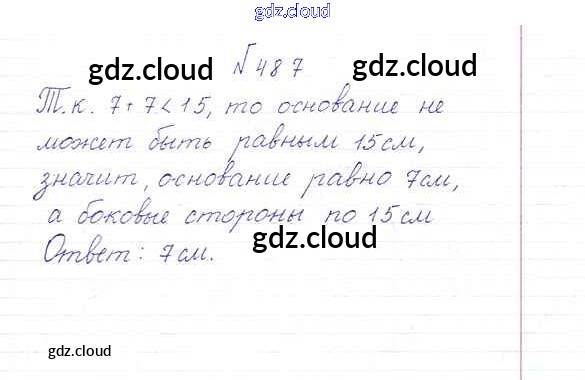 gdz.cloud
№487
gdz.cloud gdz.cloud
Т.к. 7+7<15, то основание не
может быть равным 15см,
значит, основание равно 7см,
а боковые стороны по 15см
Ответ: 7см.
gdz.cloud
gdz.cloud